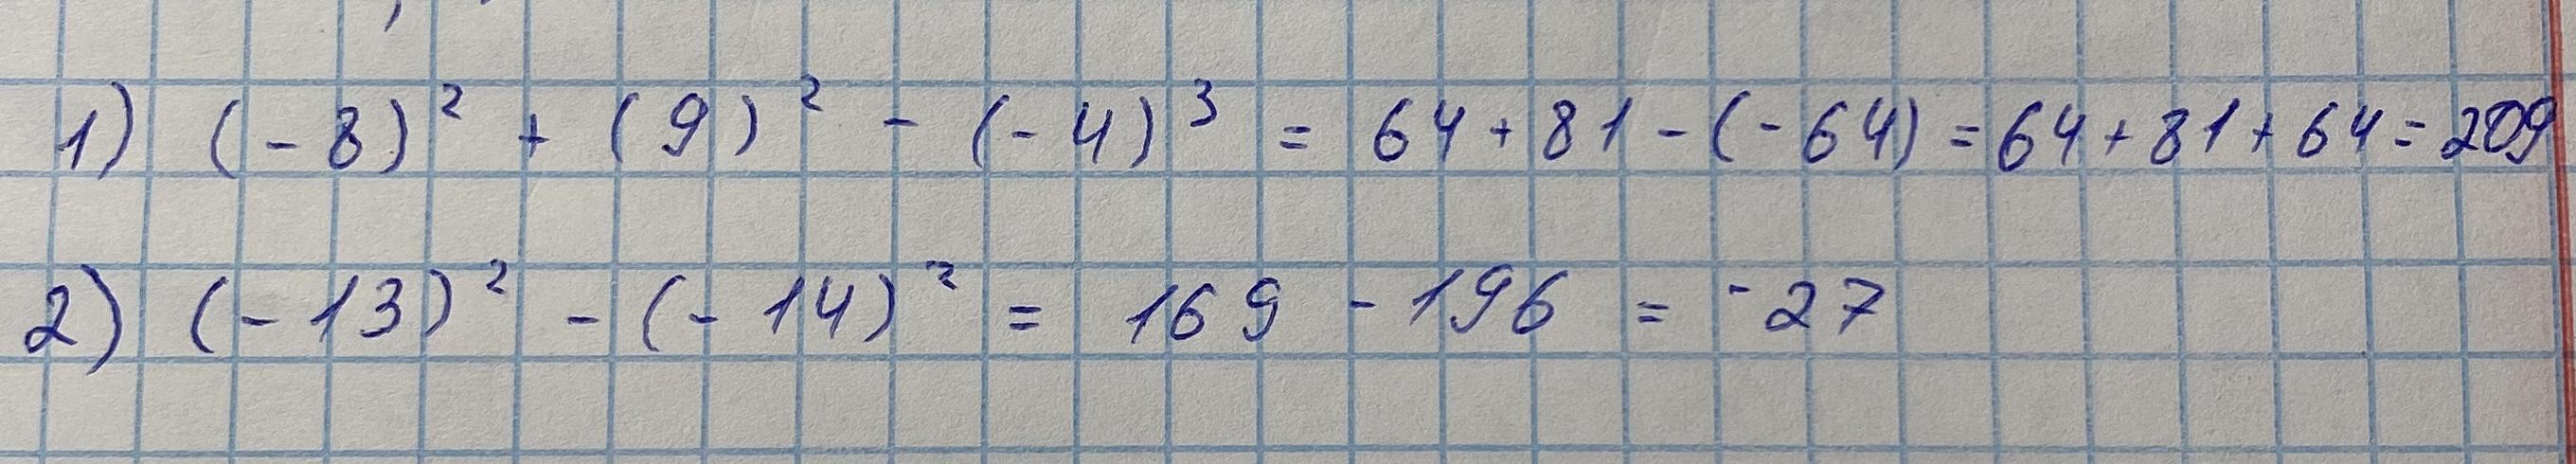 1) (-8)² + (9)² - (-4)³ = 64 + 81 - (-64) = 64 + 81 + 64 = 209
2) (-13)² - (-14)² = 169 - 196 = -27